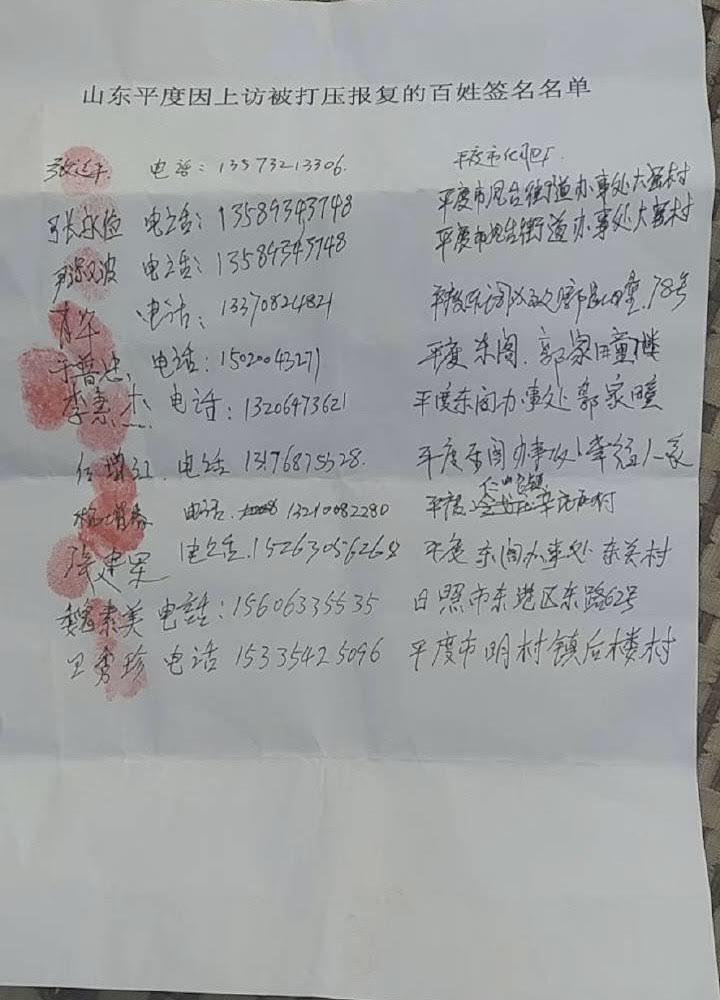 山东平度因上访被打压报复的百姓签名名单
电话：13573213306. 平度市化肥厂.
张永俭 电话：13589343748 平度市凤台街道办事处大窑村
波 电话：13589343748 平度市凤台街道办事处大窑村
肖华 电话：13370824821 平度东阁 78号
于普忠 电话：15020043271 平度 东阁. 郭家疃
李素杰 电话：13206473621 平度东阁办事处 郭家疃
任增江 电话 13176875528. 平度东阁办事处
增 电话. 13210082280 平度 村
张建军 电话. 15263056268 平度 东阁办事处 东关村
魏素美 电話：15606335535 日照市东港区东路62号
卫秀珍 电话 15335425096 平度市明村镇后楼村